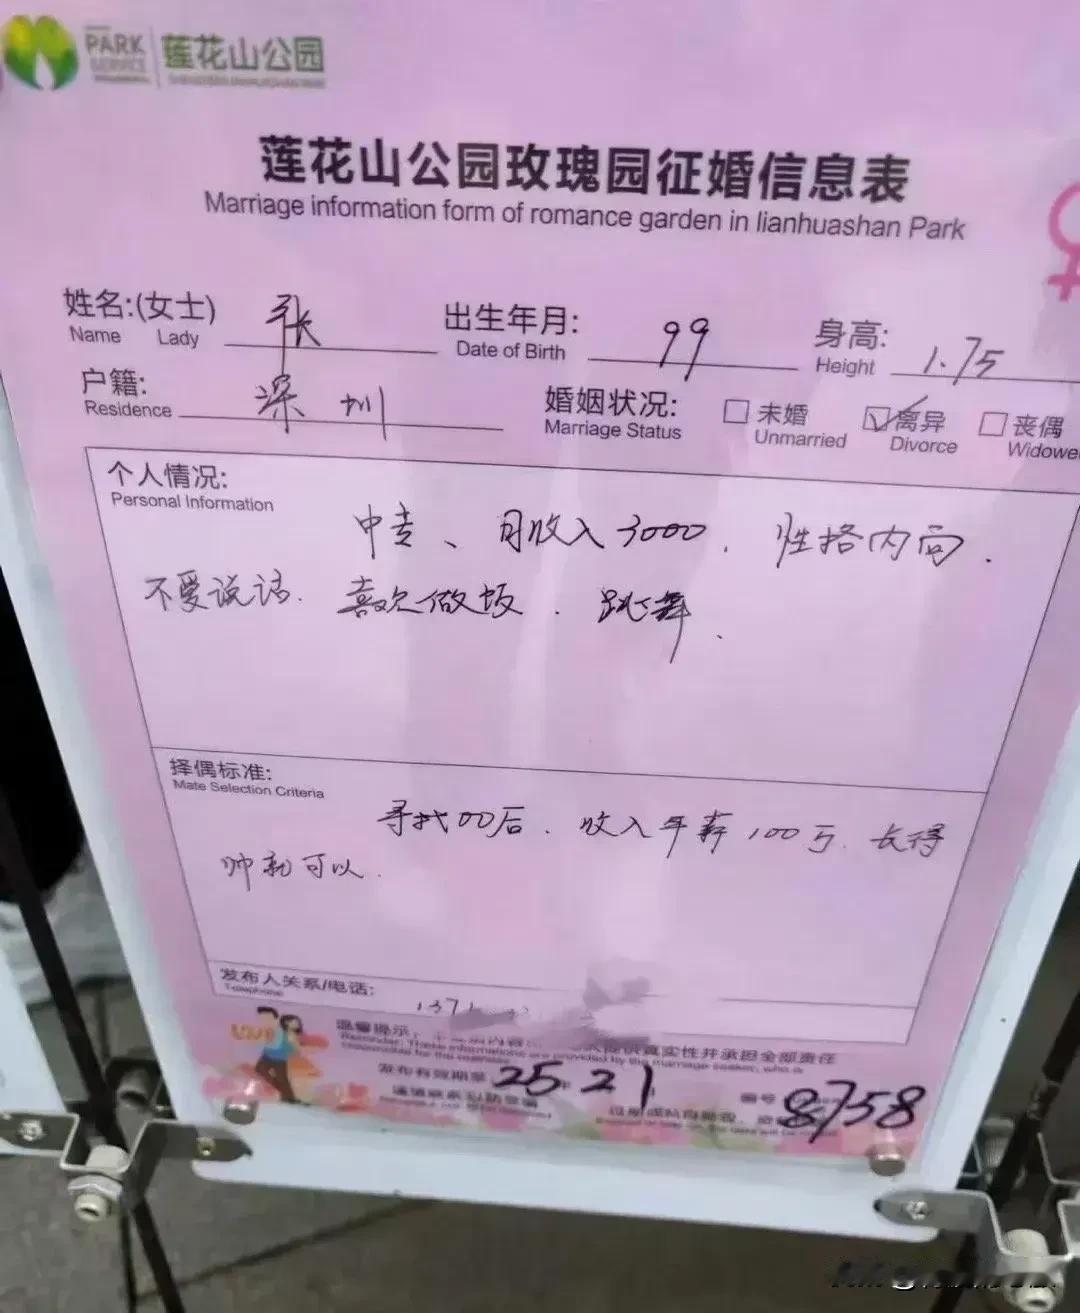 PARK
SERVICE
莲花山公园
莲花山公园玫瑰园征婚信息表
Marriage information form of romance garden in lianhuashan Park
姓名:(女士) 张 出生年月: 99 身高: 1.75
Name Lady Date of Birth Height
户籍: 深圳 婚姻状况: 未婚 离异 丧偶
Residence Marriage Status Unmarried Divorce Widowe
个人情况:
Personal Information
中专、月收入3000. 性格内向.
不爱说话. 喜欢做饭. 跳舞.
择偶标准:
Mate Selection Criteria
寻找00后. 收入年薪100万. 长得
帅就可以.
发布人关系/电话: 137
Telephone
LOVE 温馨提示: 提供真实性并承担全部责任
Reminder: These informations are provided by the marriage seeker, who is
responsible for the
发布有效期至 25 21 编号 8758